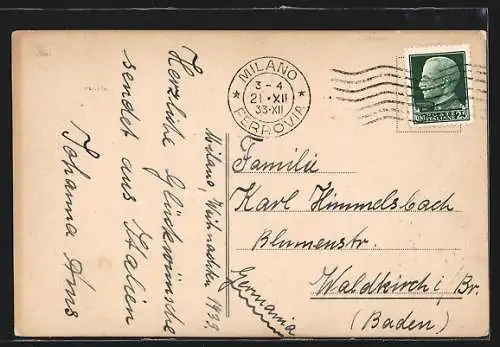 Herzliche Glückwünsche
sendet aus Italien
Johanna Ams
Milano, Weihnachten 1933.
MILANO
3-4
21·XII
33·XII
FERROVIA
Familie
Karl Himmelsbach
Blumenstr.
Waldkirch i/Br.
(Baden)
Germania